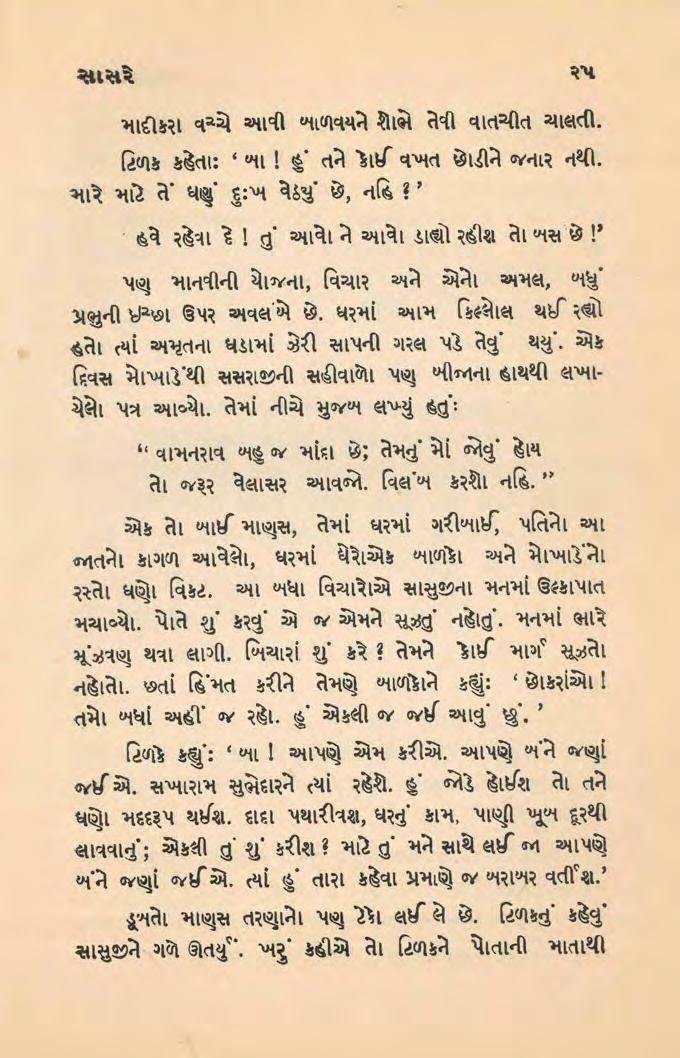 સાસરે ૨૫
માદીકરા વચ્ચે આવી બાળવયને શોભે તેવી વાતચીત ચાલતી.
ટિળક કહેતાઃ ‘ બા ! હું તને કોઈ વખત છોડીને જનાર નથી.
મારે માટે તેં ઘણું દુઃખ વેઠ્યું છે, નહિ ? ’
હવે રહેવા દે ! તું આવો ને આવો ડાહ્યો રહીશ તો બસ છે !’
પણ માનવીની યોજના, વિચાર અને એનો અમલ, બધું
પ્રભુની ઇચ્છા ઉપર અવલંબે છે. ઘરમાં આમ કિલ્લોલ થઈ રહ્યો
હતો ત્યાં અમૃતના ઘડામાં ઝેરી સાપની ગરલ પડે તેવું થયું. એક
દિવસ મોખાડેથી સસરાજીની સહીવાળો પણ બીજાના હાથથી લખા-
યેલો પત્ર આવ્યો. તેમાં નીચે મુજબ લખ્યું હતુંઃ
“ વામનરાવ બહુ જ માંદા છે; તેમનું મોં જોવું હોય
તો જરૂર વેલાસર આવજો. વિલંબ કરશો નહિ. ”
એક તો બાઈ માણુસ, તેમાં ઘરમાં ગરીબાઈ, પતિનો આ
જાતનો કાગળ આવેલો, ઘરમાં ઘેરોએક બાળકો અને મોખાડેંનો
રસ્તો ઘણો વિકટ. આ બધા વિચારોએ સાસુજીના મનમાં ઉલ્કાપાત
મચાવ્યો. પોતે શું કરવું એ જ એમને સૂઝતું નહોતું. મનમાં ભારે
મૂંઝવણ થવા લાગી. બિચારાં શું કરે ? તેમને કોઈ માર્ગ સૂઝતો
નહોતો. છતાં હિંમત કરીને તેમણે બાળકોને કહ્યુંઃ ‘ છોકરાંઓ !
તમો બધાં અહીં જ રહો. હું એકલી જ જઈ આવું છું. ’
ટિળકે કહ્યુંઃ ‘ બા ! આપણે એમ કરીએ. આપણે બંને જણાં
જઈએ. સખારામ સુભેદારને ત્યાં રહેશે. હું જોડે હોઈશ તો તને
ઘણો મદદરૂપ થઈશ. દાદા પથારીવશ, ઘરનું કામ, પાણી ખૂબ દૂરથી
લાવવાનું; એકલી તું શું કરીશ ? માટે તું મને સાથે લઈ જા આપણે
બંને જણાં જઈએ. ત્યાં હું તારા કહેવા પ્રમાણે જ બરાબર વર્તીશ.’
ડૂબતો માણસ તરણાનો પણ ટેકો લઈ લે છે. ટિળકનું કહેવું
સાસુજીને ગળે ઊતર્યું. ખરું કહીએ તો ટિળકને પોતાની માતાથી